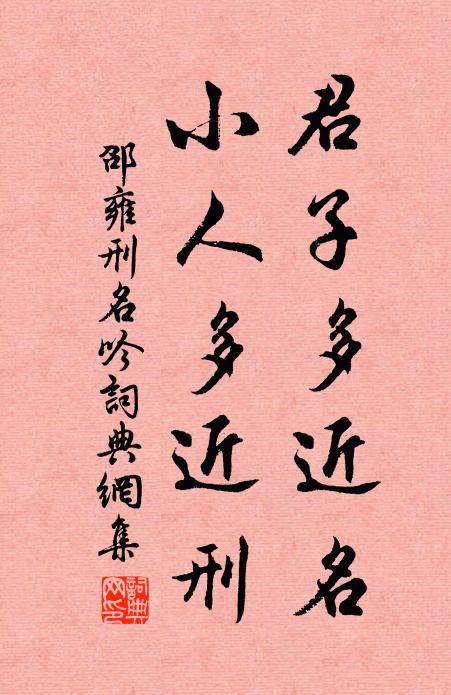 君子多近名
小人多近刑
邵雍刑名吟詞典網集
詞典網印